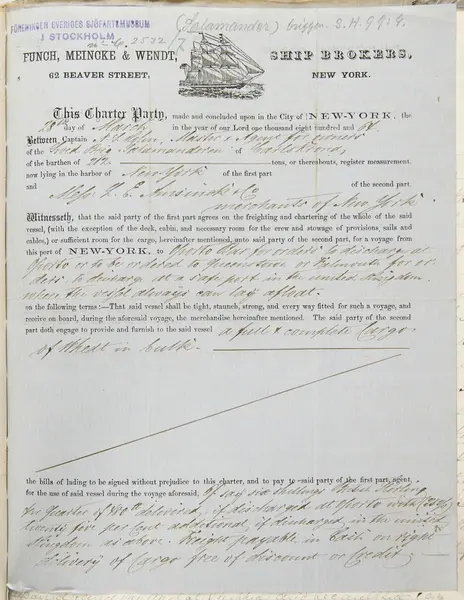 FÖRENINGEN SVERIGES SJÖFARTSMUSEUM
I STOCKHOLM
(Salamander) briggen. S.H. 99:9.
FUNCH, MEINCKE & WENDT,
SHIP BROKERS,
62 BEAVER STREET,
NEW YORK.
This Charter Party, made and concluded upon in the City of NEW-YORK, the
28th day of March in the year of our Lord one thousand eight hundred and
Between Captain Master & Agent for owners
of the Brig Salamandern of Carlskrona,
of the burthen of 212 tons, or thereabouts, register measurement,
now lying in the harbor of New-York of the first part
and Messrs of the second part.
merchants of New York
Witnesseth, that the said party of the first part agrees on the freighting and chartering of the whole of the said
vessel, (with the exception of the deck, cabin, and necessary room for the crew and stowage of provisions, sails and
cables,) or sufficient room for the cargo, hereinafter mentioned, unto said party of the second part, for a voyage from
this port of NEW-YORK, to Oporto Bar for orders to discharge at
Oporto or to be ordered to Queenstown or Falmouth for or-
ders to discharge at a safe port in the united Kingdom
where the vessel always can lay afloat.
on the following terms:—That said vessel shall be tight, staunch, strong, and every way fitted for such a voyage, and
receive on board, during the aforesaid voyage, the merchandise hereinafter mentioned. The said party of the second
part doth engage to provide and furnish to the said vessel a full & complete Cargo
of Wheat in bulk.
the bills of lading to be signed without prejudice to this charter, and to pay to said party of the first part, agent,
for the use of said vessel during the voyage aforesaid, say six shillings Sterling
the quarter of delivered, if discharged at Oporto with
twenty five per cent additional, if discharged in the united
Kingdom as above. Freight payable in Cash on right
delivery of Cargo free of discount or Credit;